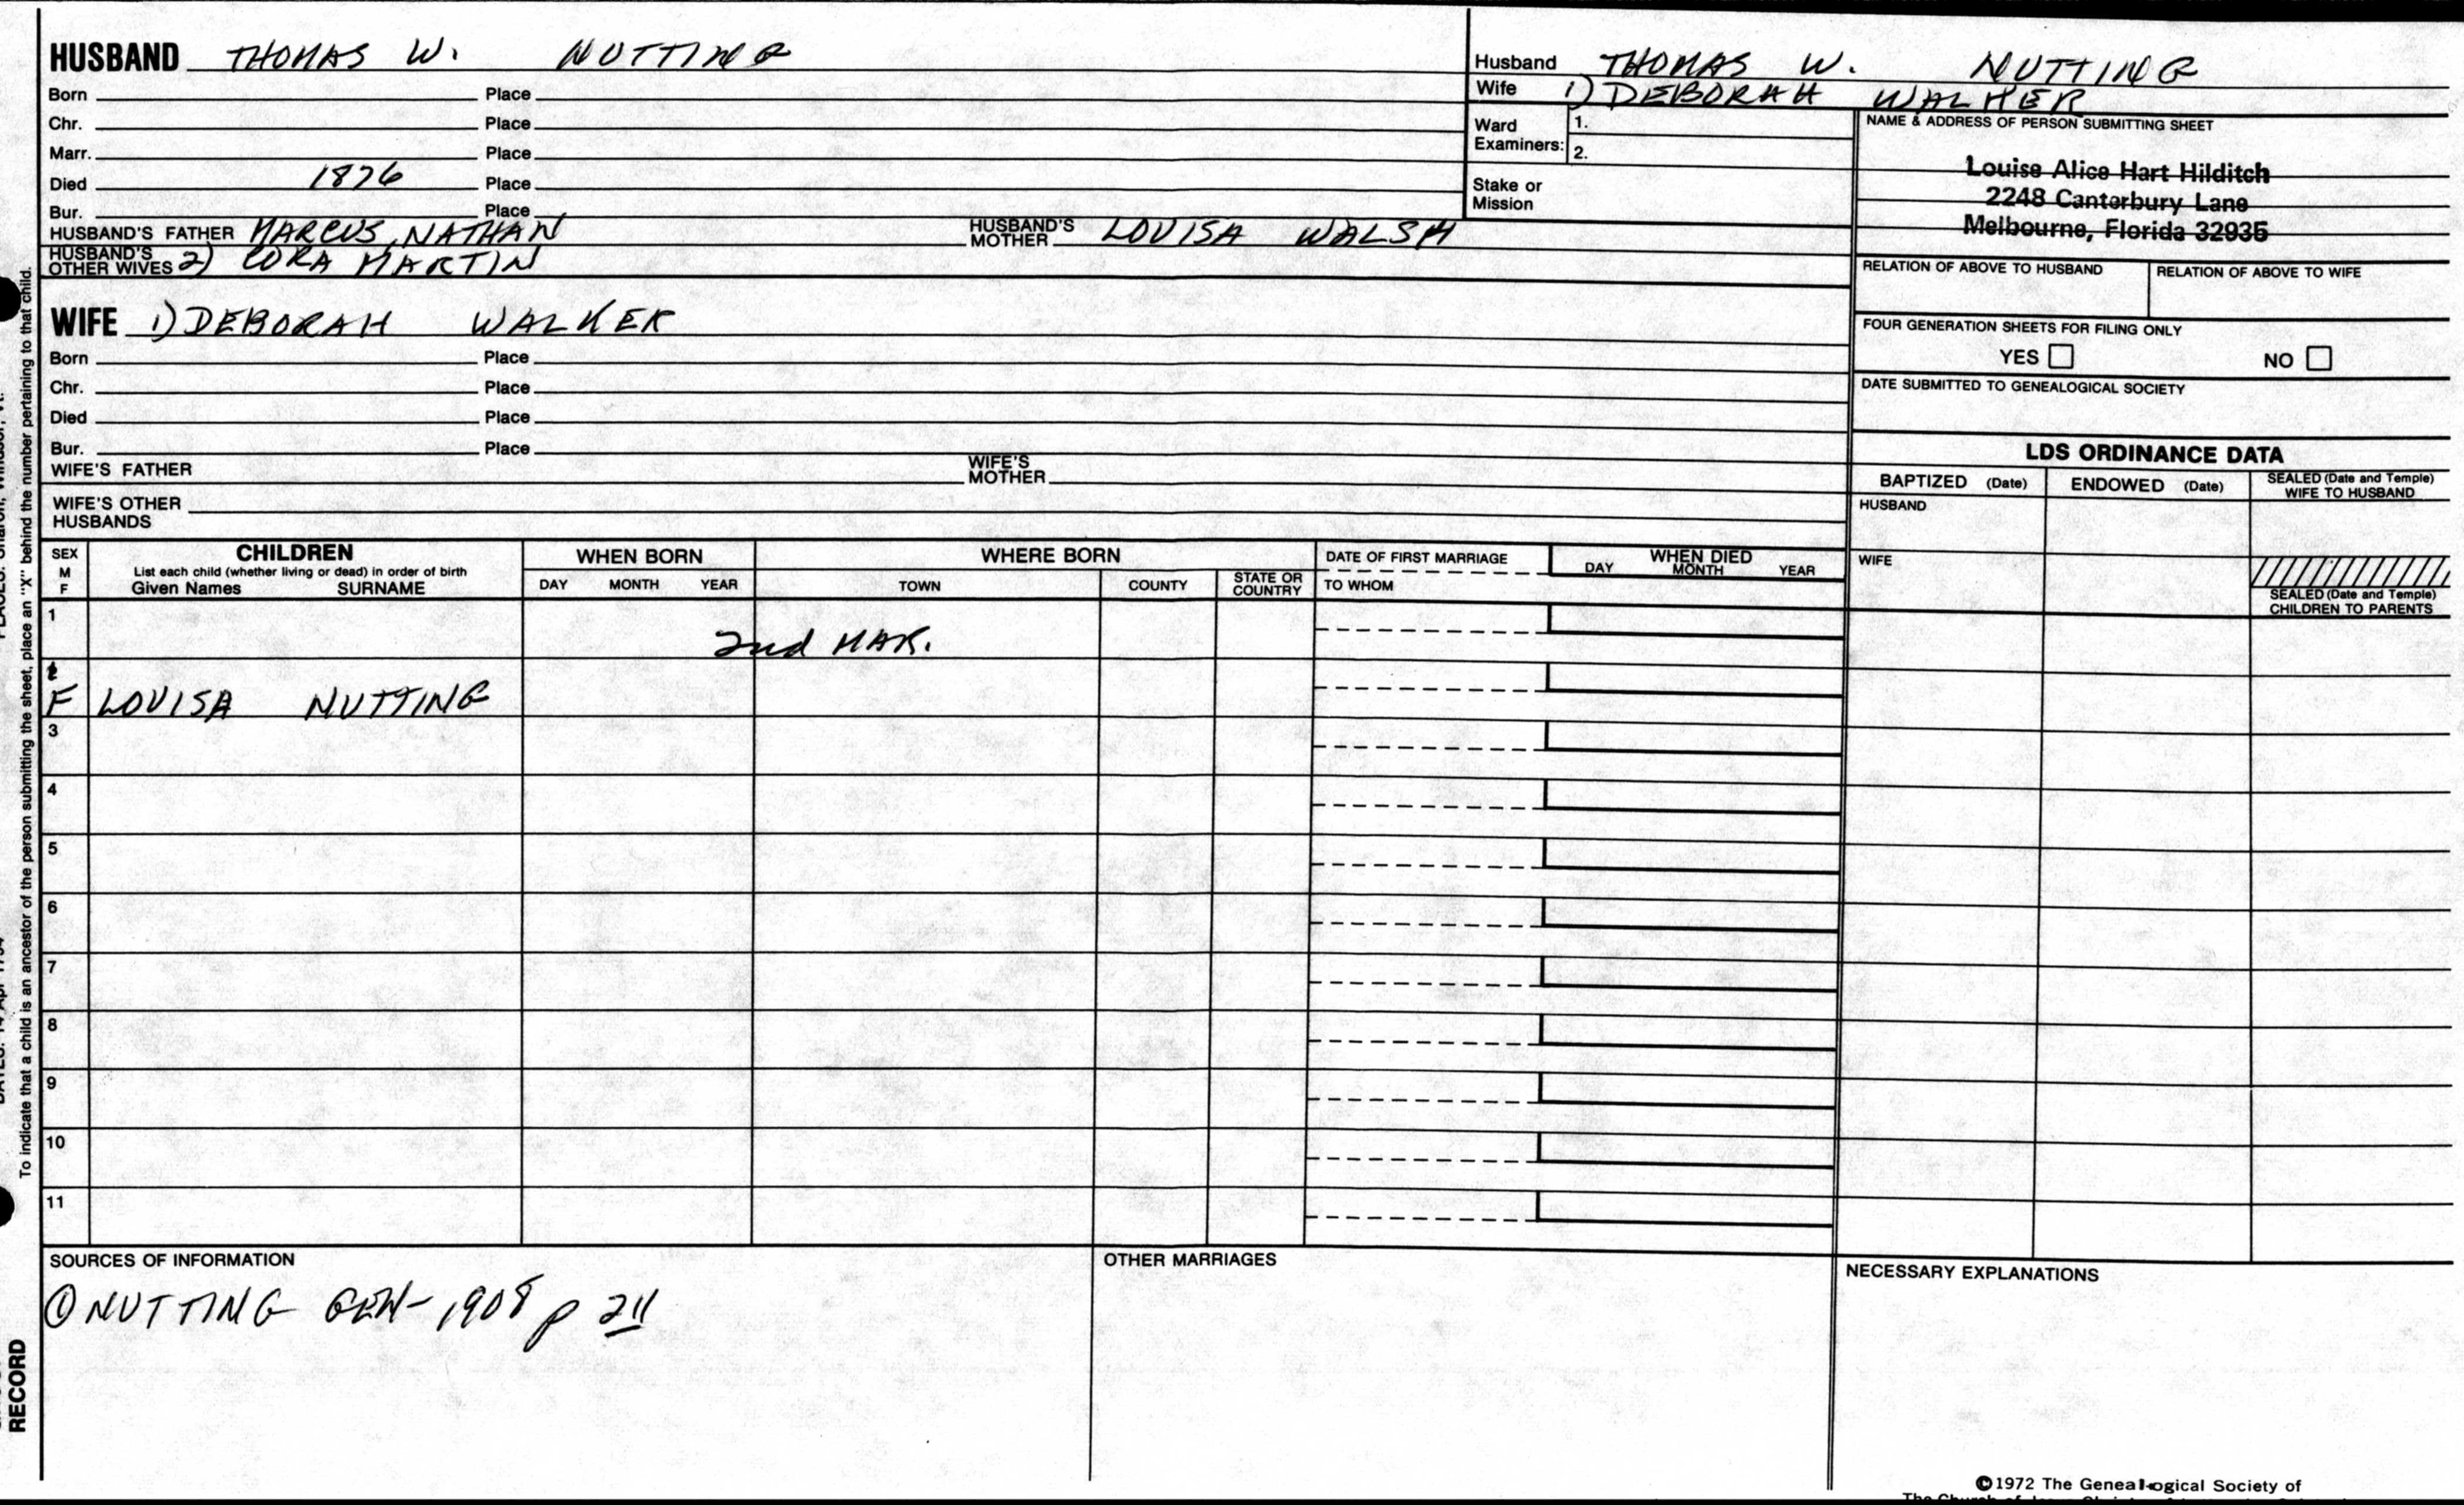 HUSBAND THOMAS W. NUTTING
Born Place
Chr. Place
Marr. Place
Died 1876 Place
Bur. Place
HUSBAND'S FATHER MARCUS NATHAN HUSBAND'S MOTHER LOUISA WALSH
HUSBAND'S OTHER WIVES 2) CORA MARTIN
WIFE 1) DEBORAH WALKER
Born Place
Chr. Place
Died Place
Bur. Place
WIFE'S FATHER WIFE'S MOTHER
WIFE'S OTHER HUSBANDS
Husband THOMAS W. NUTTING
Wife 1) DEBORAH WALKER
Ward Examiners: 1.
2.
Stake or Mission
NAME & ADDRESS OF PERSON SUBMITTING SHEET
Louise Alice Hart Hilditch
2248 Canterbury Lane
Melbourne, Florida 32935
RELATION OF ABOVE TO HUSBAND RELATION OF ABOVE TO WIFE
FOUR GENERATION SHEETS FOR FILING ONLY
YES NO
DATE SUBMITTED TO GENEALOGICAL SOCIETY
LDS ORDINANCE DATA
BAPTIZED (Date) ENDOWED (Date) SEALED (Date and Temple) WIFE TO HUSBAND
HUSBAND
WIFE
SEALED (Date and Temple) CHILDREN TO PARENTS
SEX M F
CHILDREN
List each child (whether living or dead) in order of birth
Given Names SURNAME
WHEN BORN
DAY MONTH YEAR
WHERE BORN
TOWN COUNTY STATE OR COUNTRY
DATE OF FIRST MARRIAGE
TO WHOM
WHEN DIED
DAY MONTH YEAR
1
2nd MAR.
F LOUISA NUTTING
3
4
5
6
7
8
9
10
11
SOURCES OF INFORMATION
① NUTTING GEN- 1908 p 211
OTHER MARRIAGES
NECESSARY EXPLANATIONS
©1972 The Genealogical Society of
To indicate that a child is an ancestor of the person submitting the sheet, place an "X" behind the number pertaining to that child.
RECORD